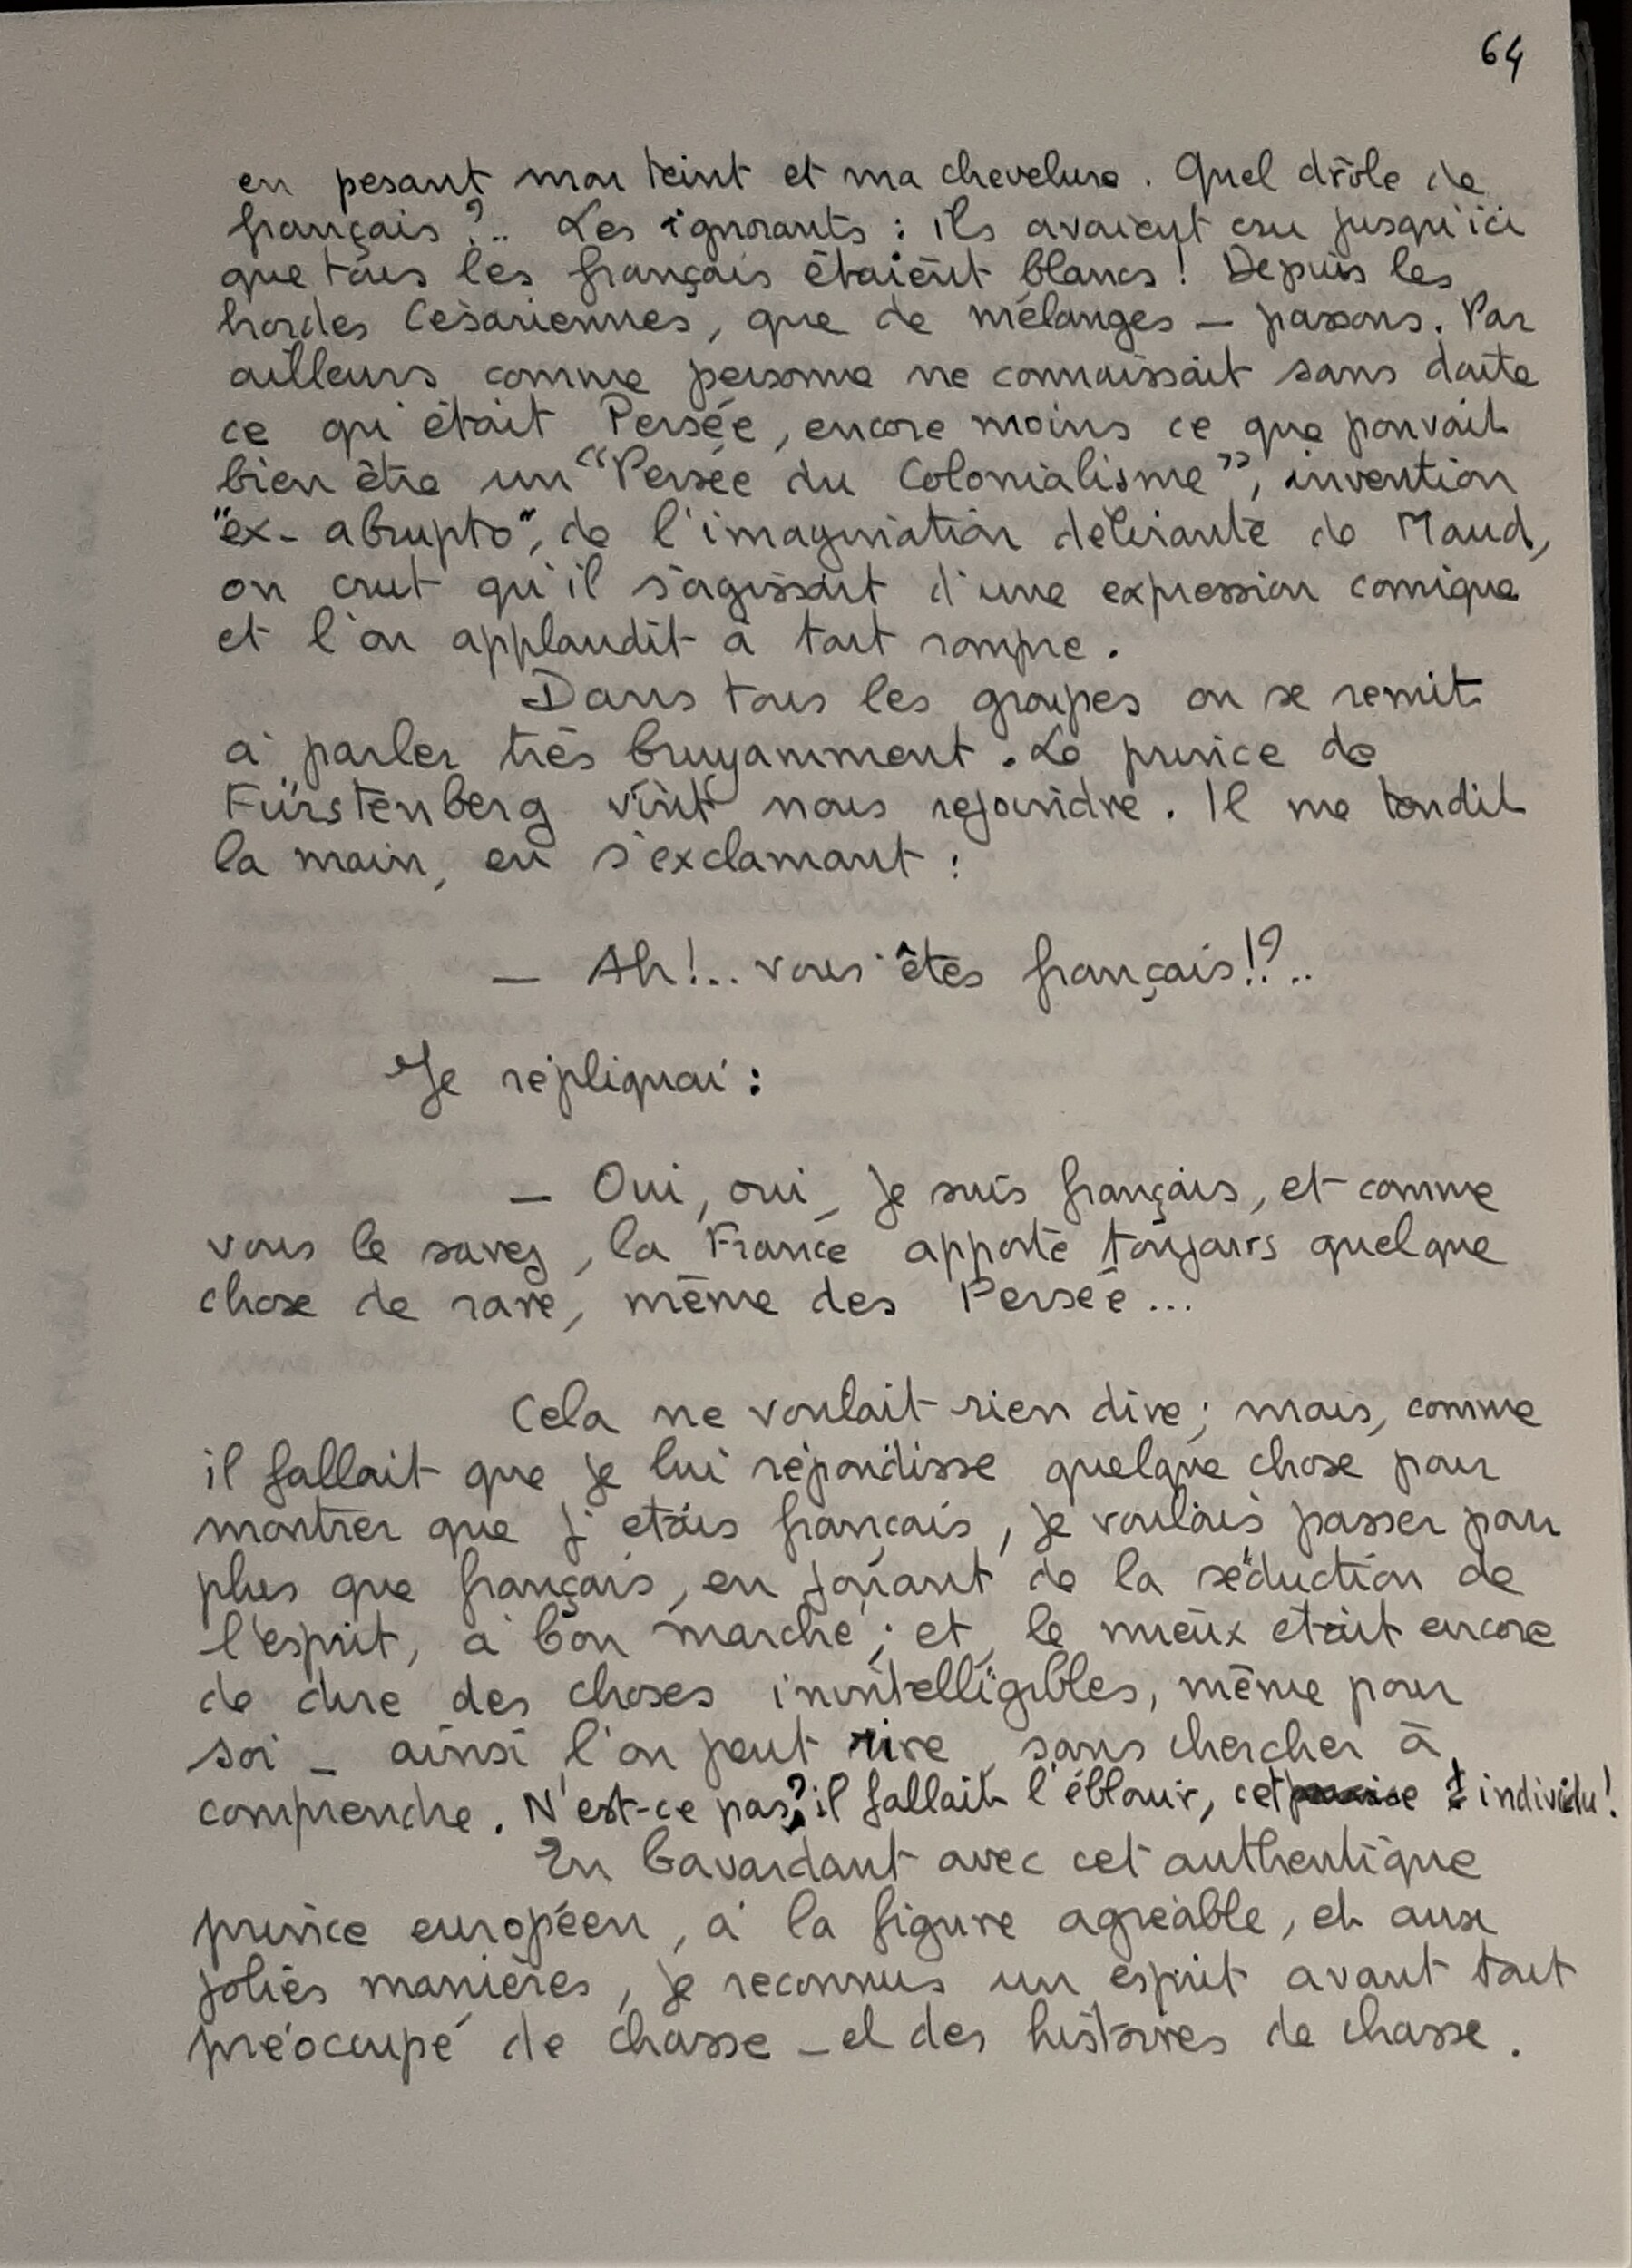 64
en pesant mon teint et ma chevelure. Quel drôle de
français ?.. Les ignorants : ils avaient cru jusqu'ici
que tous les français étaient blancs ! Depuis les
hordes Césariennes, que de mélanges — passons. Par
ailleurs comme personne ne connaissait sans doute
ce qu'était Persée, encore moins ce que pouvait
bien être un "Persée du Colonialisme", invention
"ex-abrupto", de l'imagination délirante de Maud,
on crut qu'il s'agissait d'une expression comique
et l'on applaudit à tout rompre.
Dans tous les groupes on se remit
à parler très bruyamment. Le prince de
Fürstenberg vint nous rejoindre. Il me tendit
la main, en s'exclamant :
— Ah !.. vous êtes français !?..
Je répliquai :
— Oui, oui, je suis français, et comme
vous le savez, la France apporte toujours quelque
chose de rare, même des Persée...
Cela ne voulait rien dire ; mais, comme
il fallait que je lui répondisse quelque chose pour
montrer que j'étais français, je voulais passer pour
plus que français, en jouant de la séduction de
l'esprit, à bon marché ; et, le mieux était encore
de dire des choses inintelligibles, même pour
soi — ainsi l'on peut rire, sans chercher à
comprendre. N'est-ce pas ? il fallait l'éblouir, cet individu !
En bavardant avec cet authentique
prince européen, à la figure agréable, et aux
jolies manières, je reconnus un esprit avant tout
préoccupé de chasse — et des histoires de chasse.